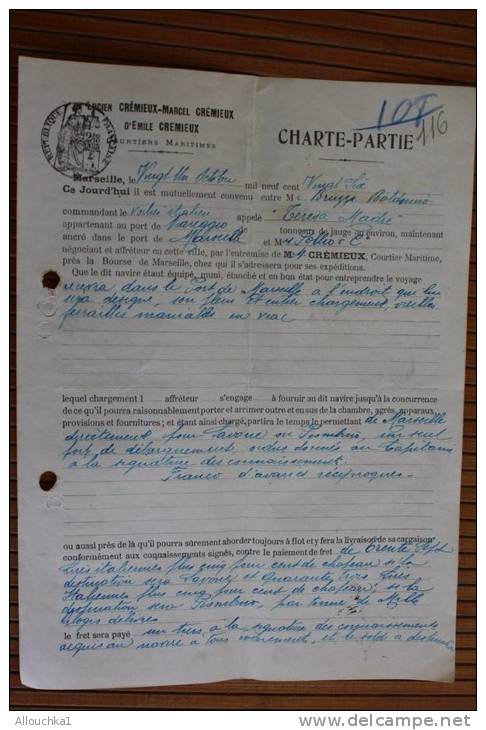 RÉPUBLIQUE FRANÇAISE
LUCIEN CRÉMIEUX-MARCEL CRÉMIEUX
D'EMILE CREMIEUX
COURTIERS MARITIMES
107
116
CHARTE-PARTIE
Marseille, le Vingt Octobre mil neuf cent Vingt Six
Ce Jourd'hui il est mutuellement convenu entre M
commandant le voilier italien appelé "Teresa Madre"
appartenant au port de Viareggio tonneaux de jauge ou environ, maintenant
ancré dans le port de Marseille et M
négociant et affréteur en cette ville, par l'entremise de M. CRÉMIEUX, Courtier Maritime,
près la Bourse de Marseille, chez qui il s'adressera pour ses expéditions.
Que le dit navire étant équipé, muni, étanché et en bon état pour entreprendre le voyage
dans le Port de Marseille à l'endroit qui lui
sera désigné, son plein et entier chargement, vieilles
ferrailles maniable en vrac
lequel chargement l affréteur s'engage à fournir au dit navire jusqu'à la concurrence
de ce qu'il pourra raisonnablement porter et arrimer outre et en sus de la chambre, agrès, apparaux,
provisions et fournitures; et étant ainsi chargé, partira le temps le permettant de Marseille
directement pour Savone ou Piombino, un seul
port de débarquement, ordres donnés au Capitaine
à la signature des connaissements.
Franco d'avaries réciproques.
ou aussi près de là qu'il pourra sûrement aborder toujours à flot et y fera la livraison de sa cargaison
conformément aux connaissements signés, contre le paiement de fret de trente sept
lires italiennes plus cinq pour cent de chapeau si la
destination sera Savone et Quarante trois lires
Italiennes plus cinq pour cent de chapeau, si la
destination sera Piombino, par tonne de Mille
kilogs délivrés
le fret sera payé un tiers à la signature des connaissements
acquis au navire à tous évènements, et le solde à destination
Allouchka1
www.delcampe.net